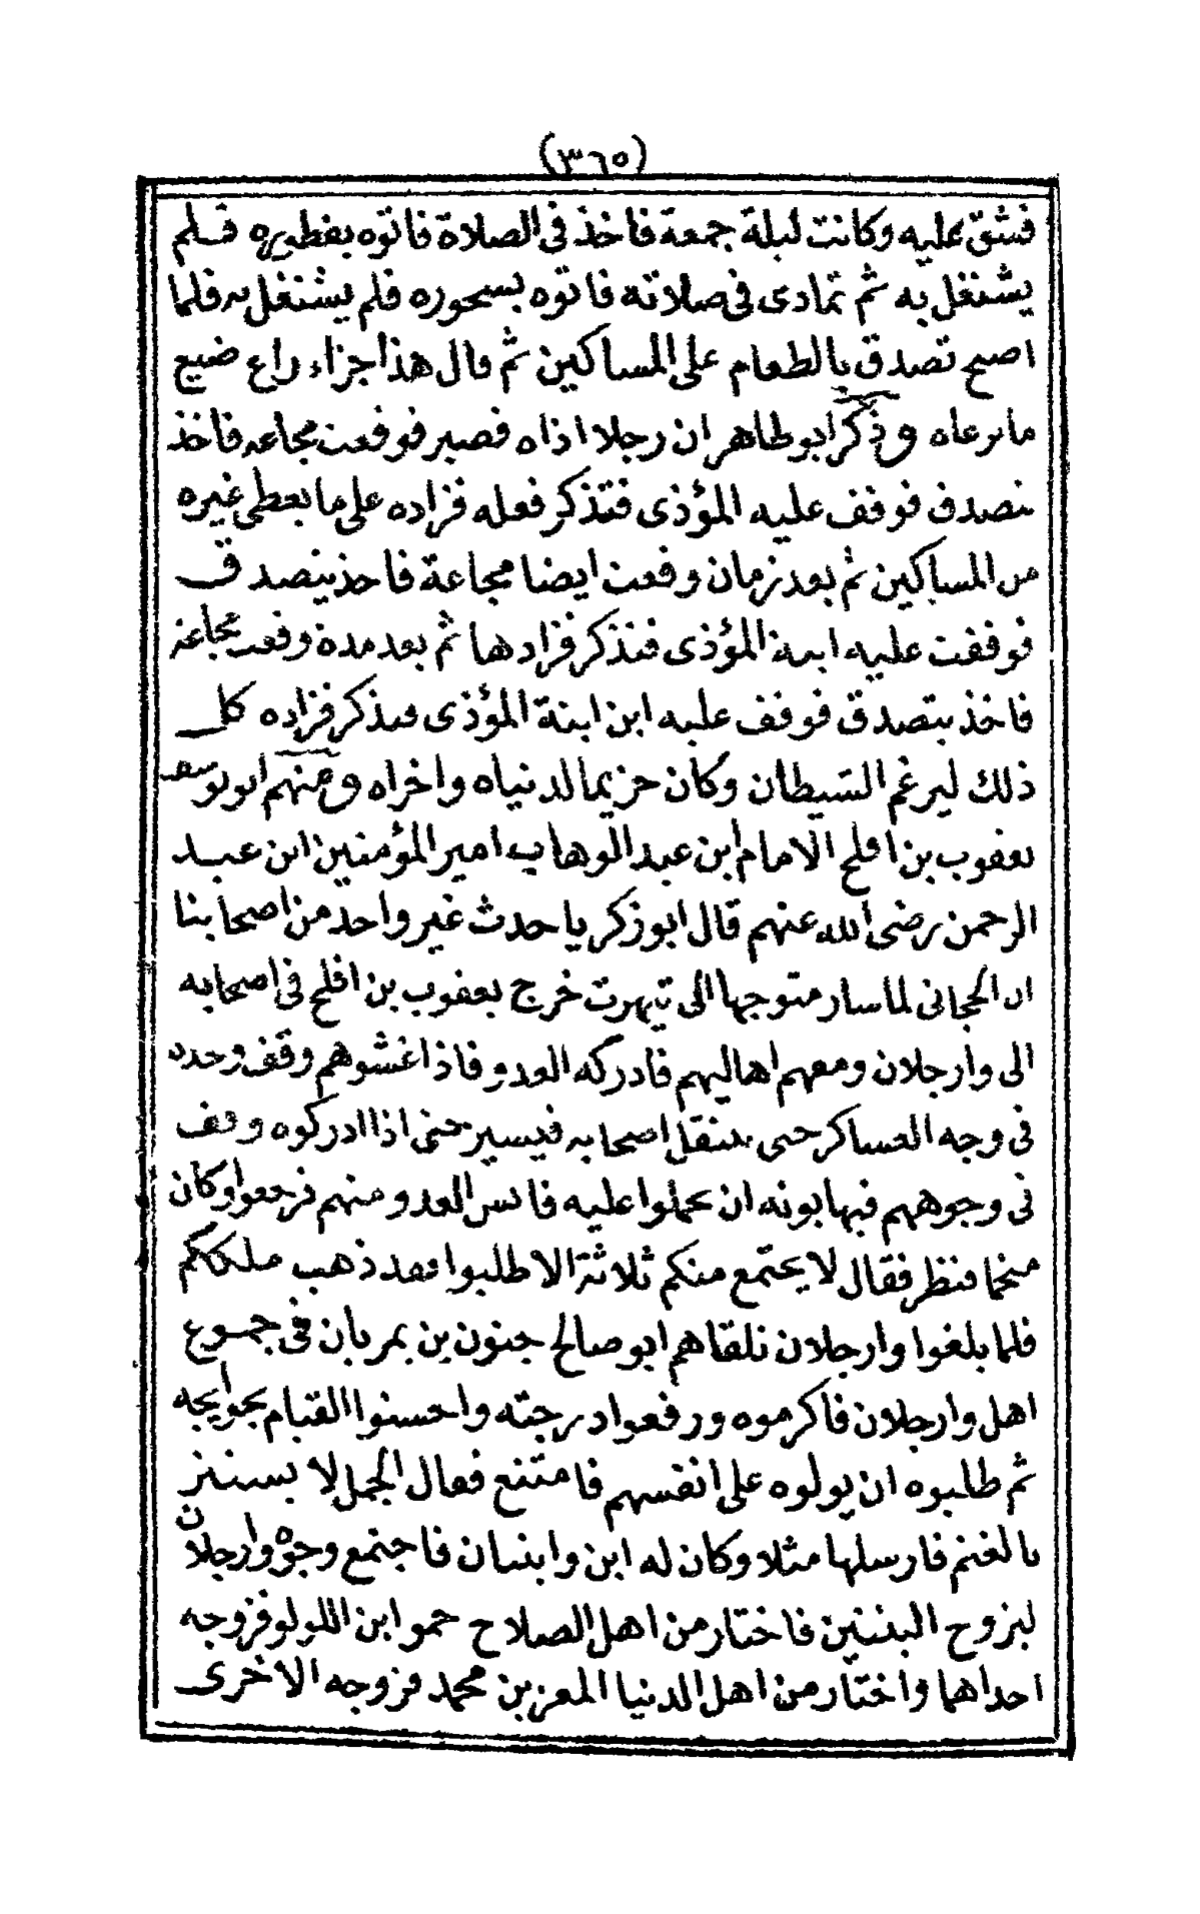 (٣٦٥)
فشق عليه وكانت ليلة جمعة فاخذ فى الصلاة فاتوه بفطيره فلم
يشتغل به ثم تمادى فى صلاته فاتوه بسحوره فلم يشتغل به فلما
اصبح تصدق بالطعام على المساكين ثم قال هذا جزاء راع ضيع
ما يرعاه وذكر ابو طاهر ان رجلا اذاه فصبر فوقعت مجاعة فاخذ
يتصدق فوقف عليه المؤذى فتذكر فعله فزاده على ما يعطى غيره
من المساكين ثم بعد زمان وقعت ايضا مجاعة فاخذ يتصدق
فوقفت عليه ابنة المؤذى فتذكر فزادها ثم بعد مدة وقعت مجاعة
فاخذ يتصدق فوقف عليه ابن ابنة المؤذى فتذكر فزاده كل
ذلك ليرغم الشيطان وكان حزيما لدنياه واخراه ومنهم ابو يوسف
يعقوب بن افلح الامام ابن عبد الوهاب امير المؤمنين ابن عبد
الرحمن رضى الله عنهم قال ابو زكريا حدث غير واحد من اصحابنا
ان الحجانى لما سار متوجها الى تيهرت خرج يعقوب بن افلح فى اصحابه
الى وارجلان ومعهم اهاليهم فادركه العدو فاذا غشوهم وقف وحده
فى وجه العساكر حتى ينتقل اصحابه فيسير حتى اذا ادركوه وقف
فى وجوههم فيهابونه ان يحملوا عليه فايس العدو منهم فرجعوا وكان
منجما فنظر فقال لا يجتمع منكم ثلاثة الا طلبوا فقد ذهب ملككم
فلما بلغوا وارجلان تلقاهم ابو صالح جنون بن يمريان فى جموع
اهل وارجلان فاكرموه ورفعوا درجته واحسنوا القيام بحوايجه
ثم طلبوه ان يولوه على انفسهم فامتنع فقال الجمل لا يستتر
بالغنم فارسلها مثلا وكان له ابن وابنتان فاجتمع وجوه وارجلان
ليزوج البنتين فاختار من اهل الصلاح حمو ابن اللولو فزوجه
احداهما واختار من اهل الدنيا المعز بن محمد فزوجه الاخرى